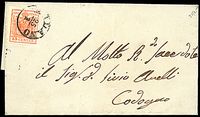 Al Molto R.do Sacerdote
il Sig.r D. Livio Anelli
Codogno